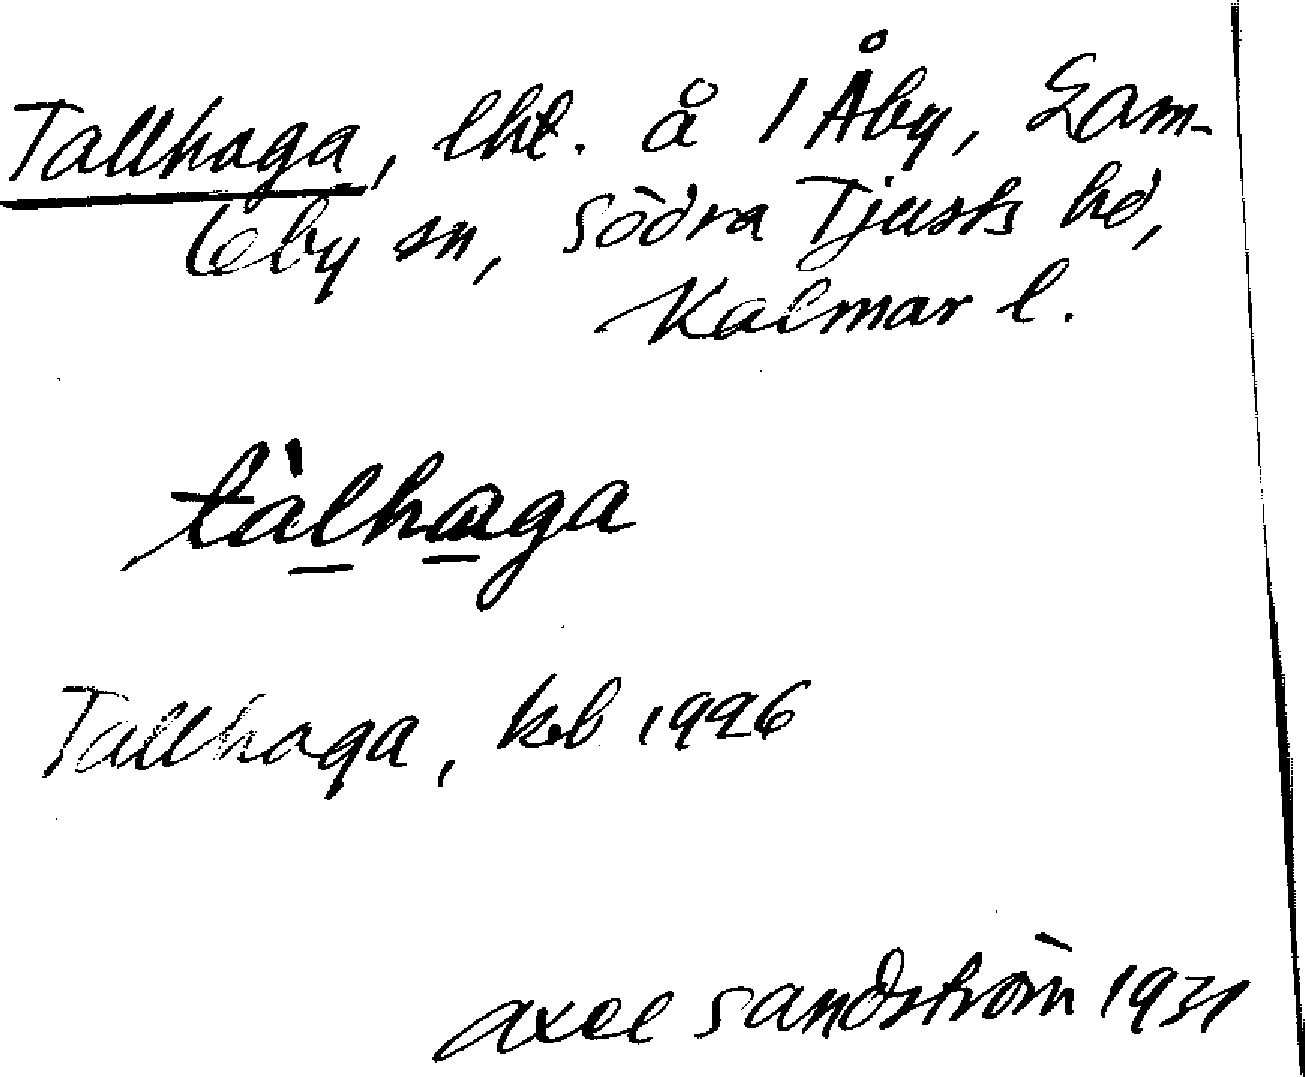 Tallhaga, lht. å 1 Åby, Gam-
leby sn, Södra Tjusts hd,
Kalmar l.
tàlhaga
Tallhaga, kb 1926
Axel Sandström 1931